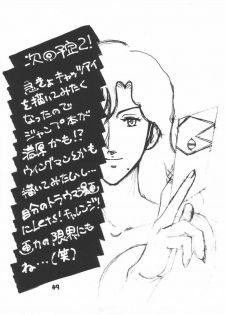 次の予定2!
急きょキャッツアイ
を描いてみたく
なったので
ジャンプ本が
濃厚かも!?
ウイングマンとかも
描いてみたいし…
自分のトラウマ漫画
にLet's!チャレンジッ
画力の限界にも
ね…(笑)
49